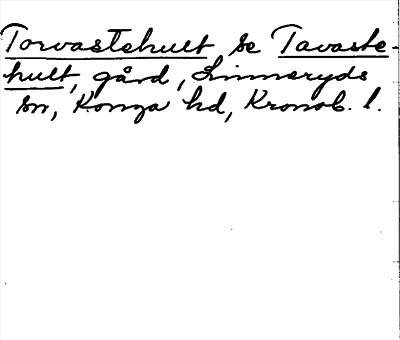 Torvastehult, se Tavaste-
hult, gård, Linneryds
sn, Konga hd, Kronob. l.